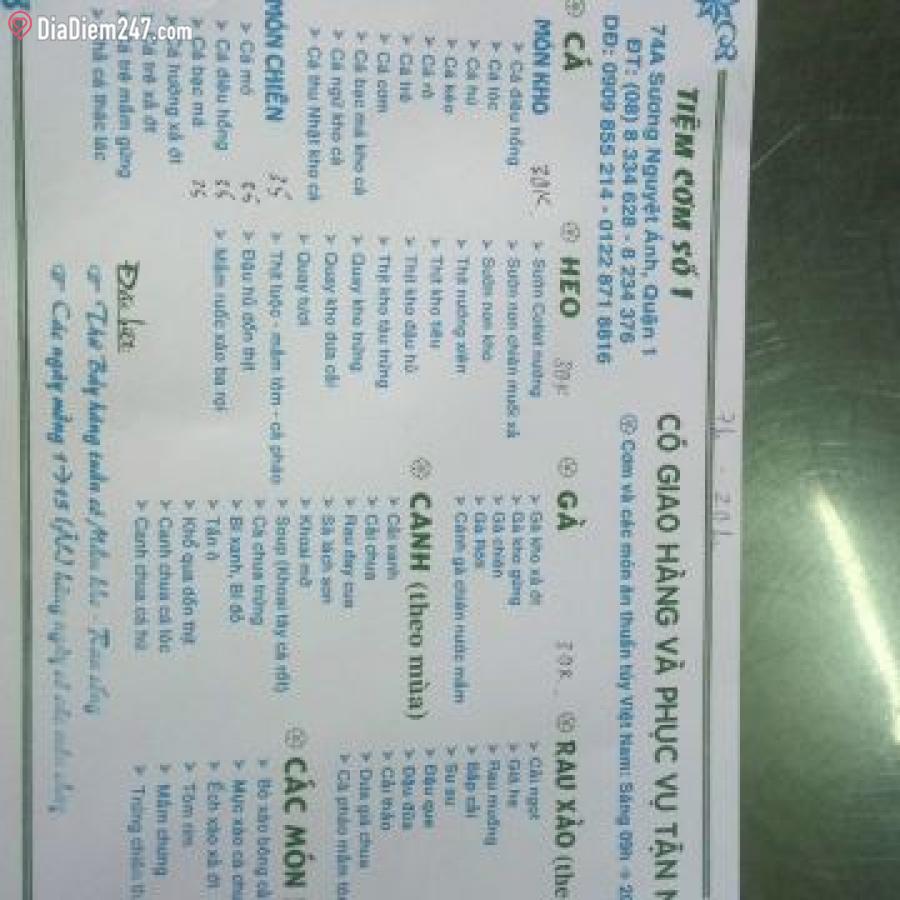 DiaDiem247.com
TIỆM CƠM SỐ 1
74A Sương Nguyệt Ánh, Quận 1
ĐT: (08) 8 334 628 - 8 234 376
DĐ: 0909 855 214 - 0122 871 8816
CÓ GIAO HÀNG VÀ PHỤC VỤ TẬN N
Cơm và các món ăn thuần túy Việt Nam: Sáng 09h → 20
CÁ
MÓN KHO 30K
Cá diêu hồng
Cá lóc
Cá hú
Cá kèo
Cá rô
Cá trê
Cá cơm
Cá bạc má kho cà
Cá ngừ kho cà
Cá thu Nhật kho cà
MÓN CHIÊN 35
Cá mó 35
Cá diêu hồng 35
Cá bạc má 35
Cá hường xả ớt
Cá trê xả ớt
Cá trê mắm gừng
chả cá thác lác
HEO 30K
Sườn Cotlet nướng
Sườn non chiên muối xả
Sườn non kho
Thịt nướng xiên
Thịt kho tiêu
Thịt kho đậu hủ
Thịt kho tàu trứng
Quay kho trứng
Quay kho dưa cải
Quay tươi
Thịt luộc - mắm tôm - cà pháo
Đậu hủ dồn thịt
Mắm ruốc xào ba rọi
GÀ 30K
Gà kho xả ớt
Gà kho gừng
Gà chiên
Gà Roti
Cánh gà chiên nước mắm
CANH (theo mùa)
Cải xanh
Cải chua
Rau đay cua
Sà lách son
Khoai mỡ
Soup (Khoai tây cà rốt)
Cà chua trứng
Bí xanh, Bí đỏ
Tần ô
Khổ qua dồn thịt
Canh chua cá lóc
Canh chua cá hú
RAU XÀO (the
Cải ngọt
Giá hẹ
Rau muống
Bắp cải
Su su
Đậu que
Đậu đũa
Cải thảo
Dưa giá chua
Cà pháo mắm tô
CÁC MÓN
Bò xào bông cả
Mực xào cà chu
Ếch xào xả ớt
Tôm rim
Mắm chưng
Trứng chiên th
Đặc biệt:
Thứ Bảy hàng tuần có Mắm kho - Rau sống
Các ngày mồng 1→15 (ÂL) hàng ngày có